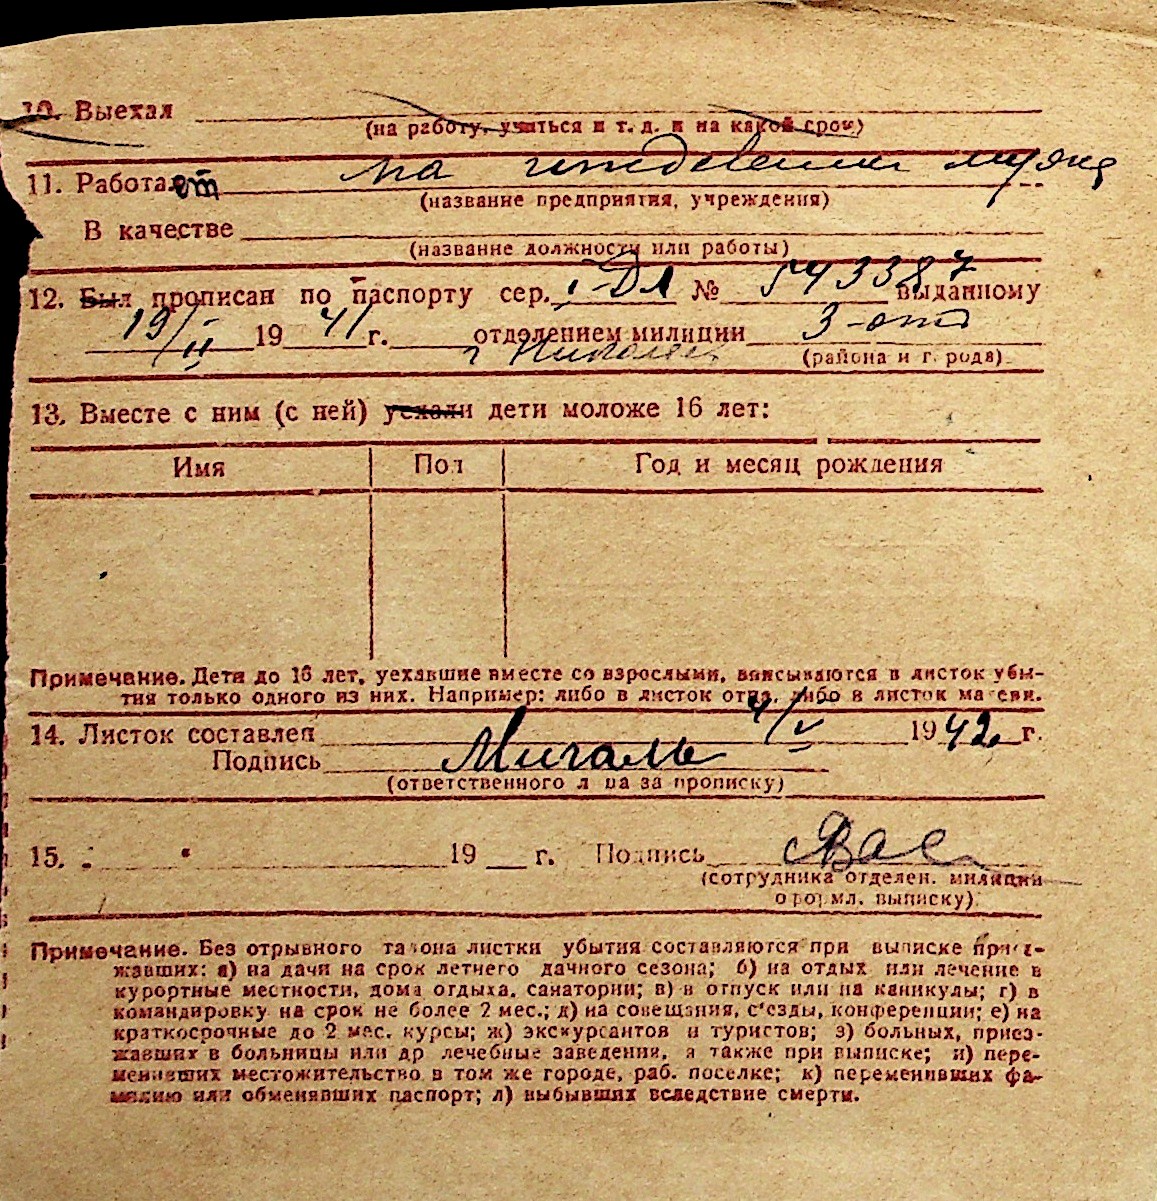 10. Выехал
(на работу, учиться и т. д. и на какой срок)
11. Работает на иждевении мужа
(название предприятия, учреждения)
В качестве
(название должности или работы)
12. Был прописан по паспорту сер. I-ДЛ № 543387 выданному
19/II 1941 г. отделением милиции 3-отд
г (района и г. рода)
13. Вместе с ним (с ней) уехали дети моложе 16 лет:
Имя Пол Год и месяц рождения
Примечание. Дети до 16 лет, уехавшие вместе со взрослыми, вписываются в листок убы-
тия только одного из них. Например: либо в листок отца, либо в листок матери.
14. Листок составлен 4/V 1942 г.
Подпись
(ответственного лица за прописку)
15. " " 19 г. Подпись
(сотрудника отделен. милиции
оформл. выписку)
Примечание. Без отрывного талона листки убытия составляются при выписке приез-
жавших: а) на дачи на срок летнего дачного сезона; б) на отдых или лечение в
курортные местности, дома отдыха, санатории; в) в отпуск или на каникулы; г) в
командировку на срок не более 2 мес.; д) на совещания, с'езды, конференции; е) на
краткосрочные до 2 мес. курсы; ж) экскурсантов и туристов; з) больных, приез-
жавших в больницы или др лечебные заведения, а также при выписке; и) пере-
менивших местожительство в том же городе, раб. поселке; к) переменивших фа-
милию или обменявших паспорт; л) выбывших вследствие смерти.